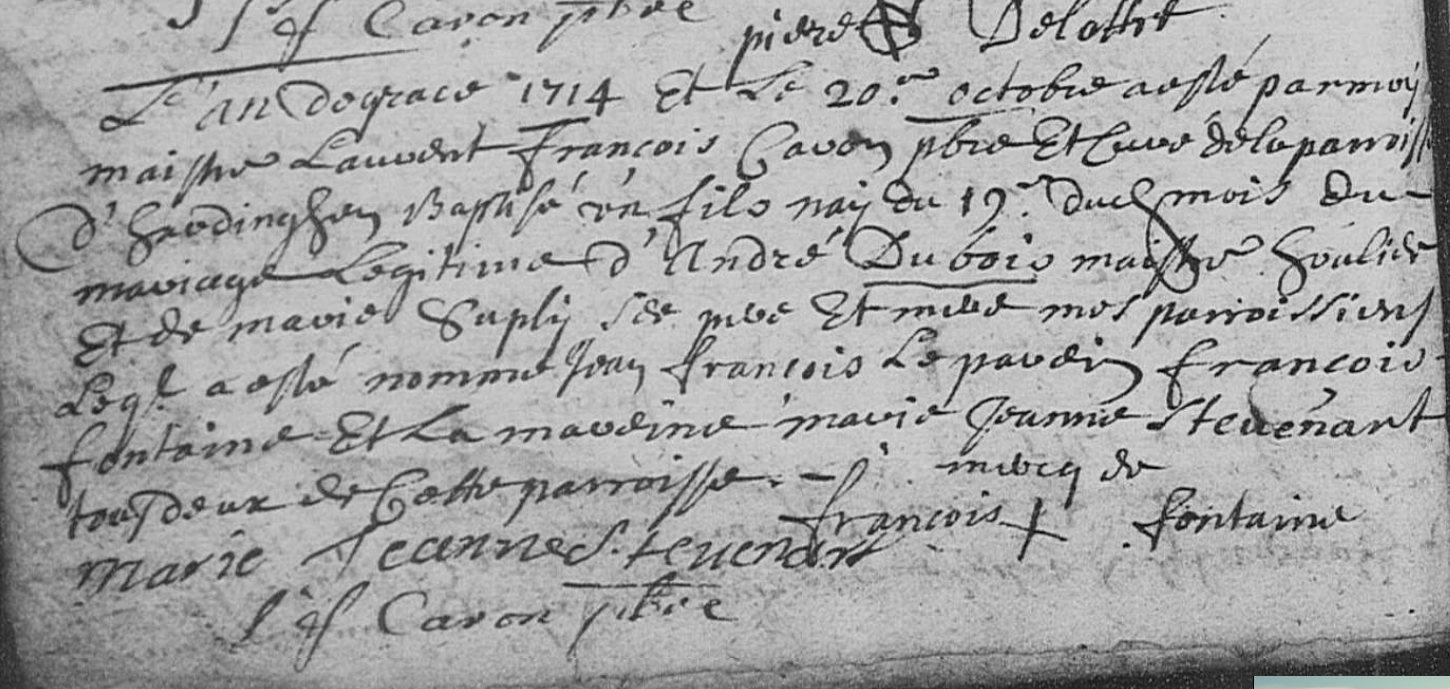 Caron pbre
pierre Delattre
L'an de grace 1714 Et Le 20.e octobre a esté par moy
maistre Laurent François Caron pbre Et Curé de la parroisse
d'hardinghen Baptisé un fils naÿ du 19.e dud mois du
mariage Legitime d'André Dubois maistre houlier
Et de marie Suplÿ ses pere Et mere mes parroissiens
Leql a esté nommé Jean françois Le parein françois
fontaine Et La mareine marie Jeanne Stevenart
tous deux de Cette parroisse. -
mercq de
françois + fontaine
Marie Jeanne Stevenart
Caron pbre